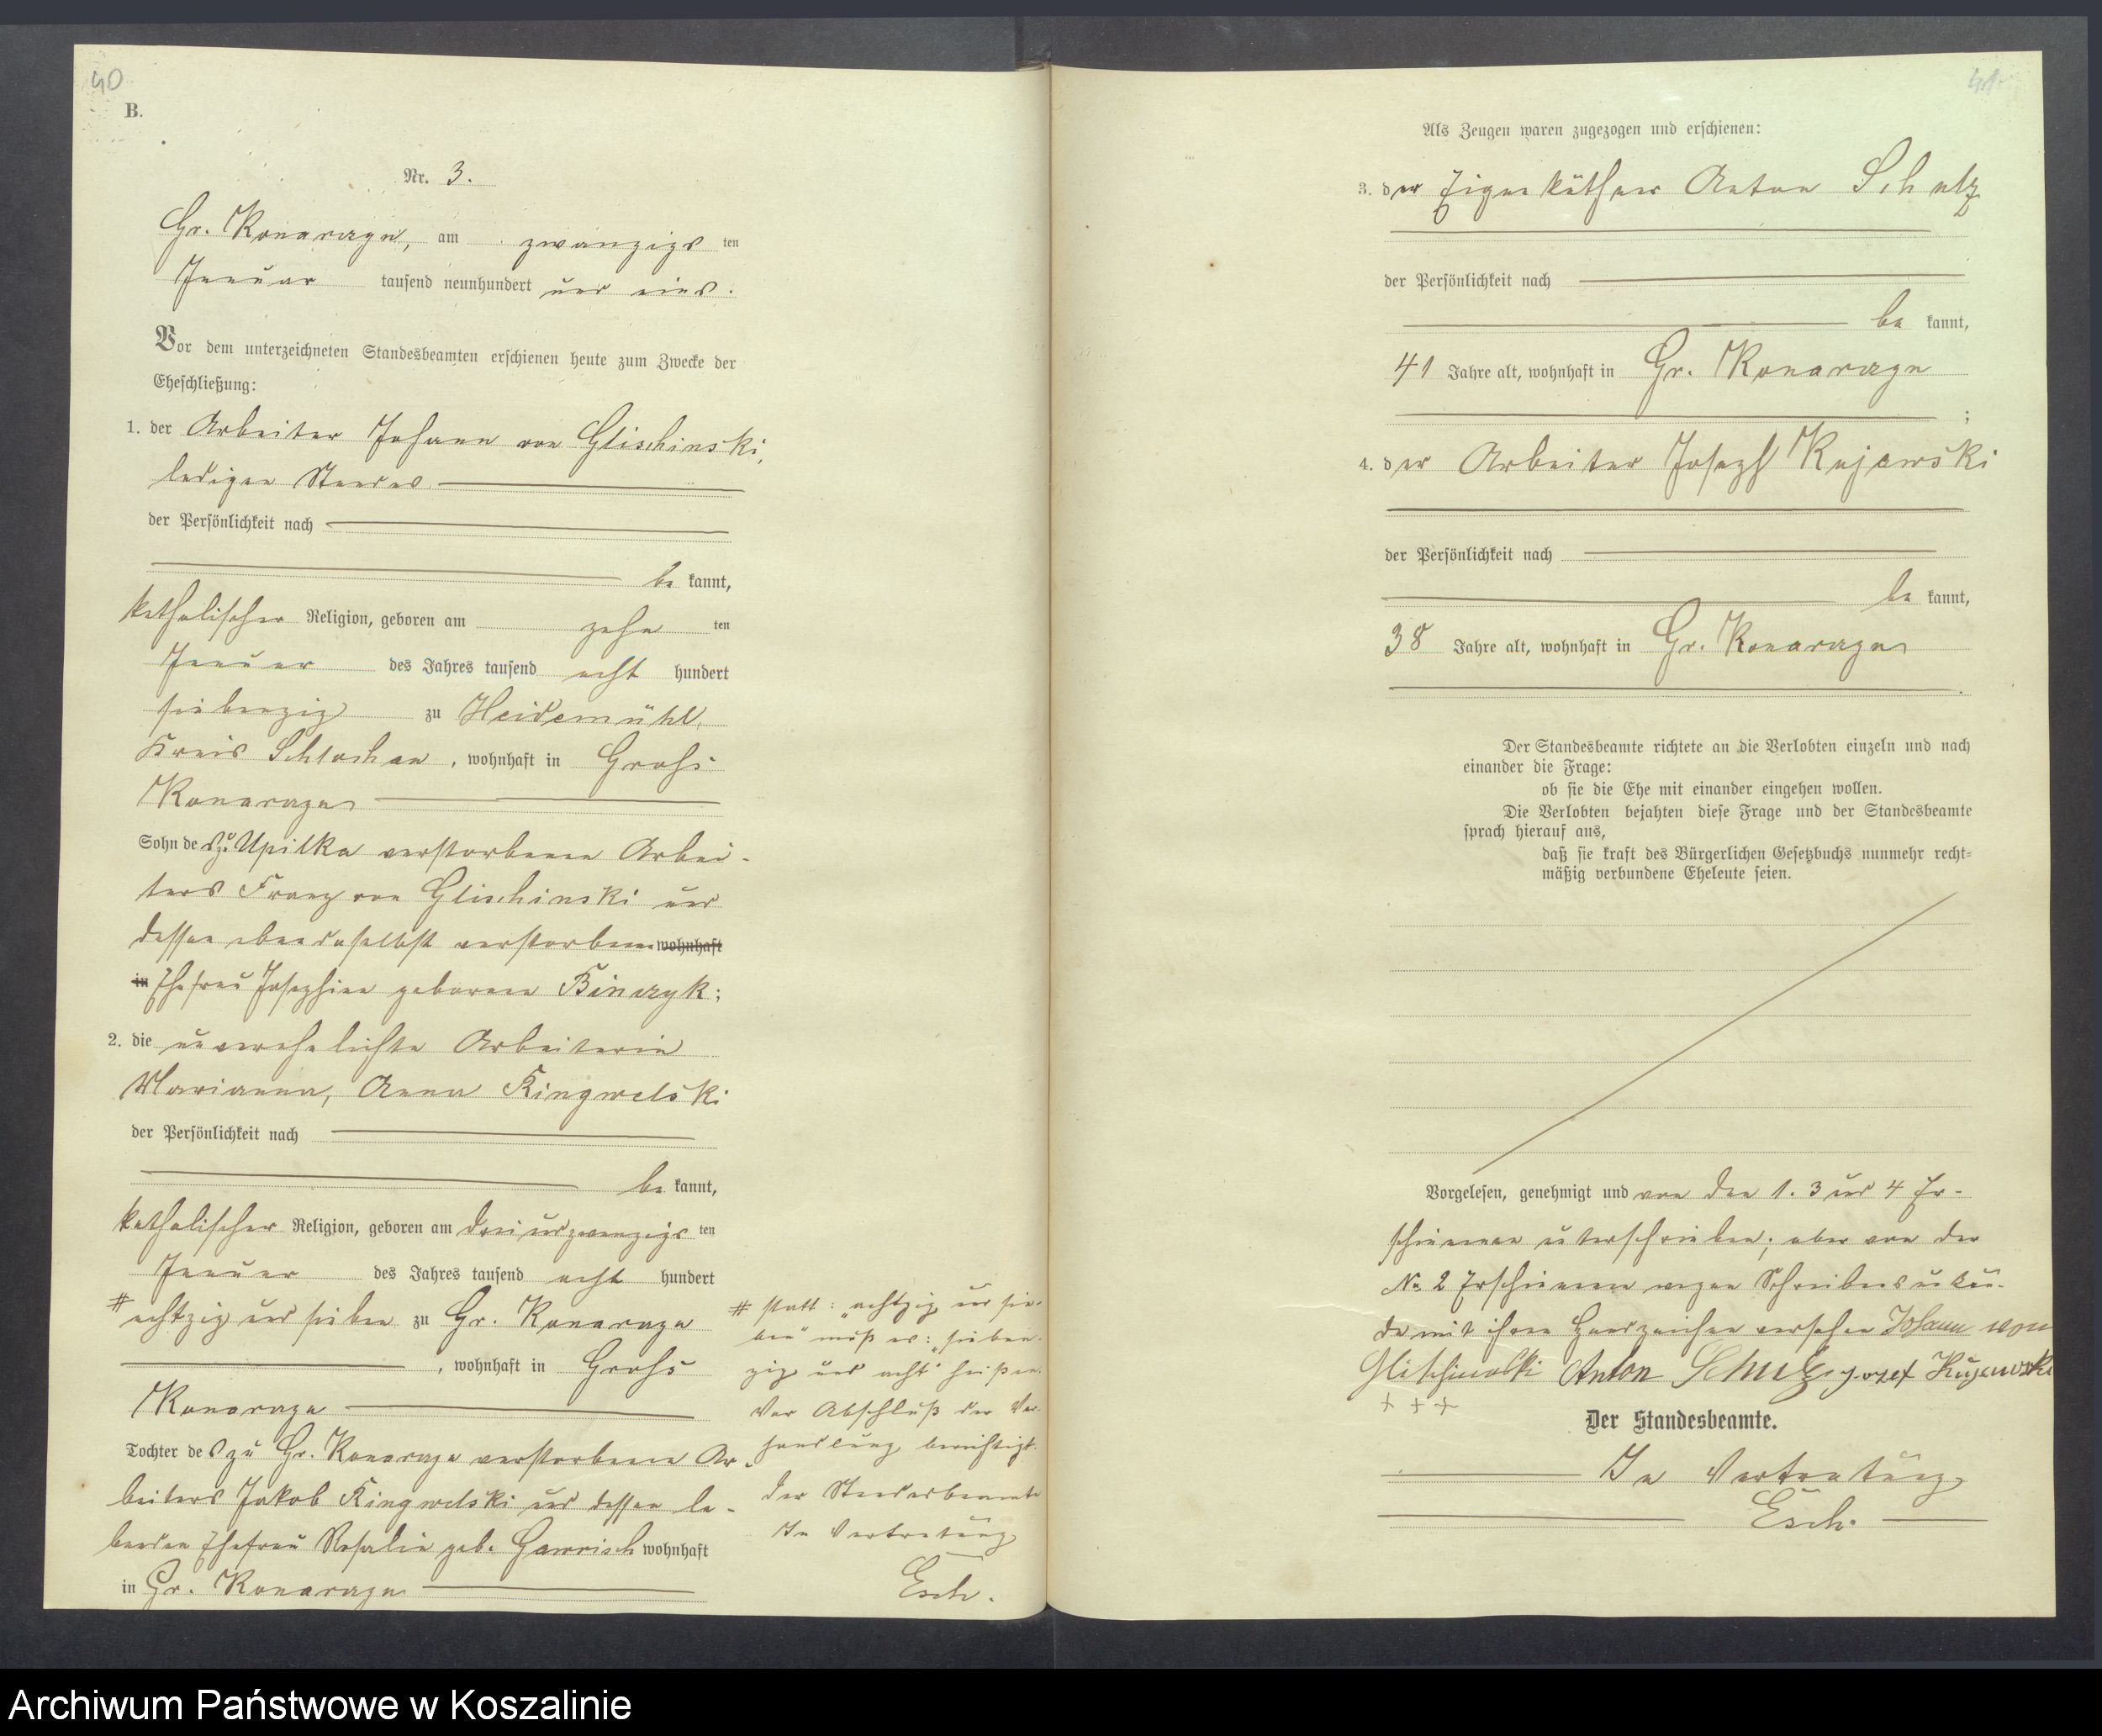 40
B.
Nr. 3.
Gr. Konarczyn, am zwanzigs ten
Januar tausend neunhundert und eins.
Vor dem unterzeichneten Standesbeamten erschienen heute zum Zwecke der
Eheschließung:
1. der Arbeiter Johann von Glischinski,
ledigen Standes
der Persönlichkeit nach
be kannt,
katholischer Religion, geboren am zehn ten
Januar des Jahres tausend acht hundert
siebenzig zu Heidemühl,
Kreis Schlochau, wohnhaft in Groß
Konarczyn
Sohn des zu Upilka verstorbenen Arbei-
ters Franz von Glischinski und
dessen ebendaselbst verstorbenen wohnhaft
in Ehefrau Josephine geborene Binczyk;
2. die unverehelichte Arbeiterin
Marianna, Anna Kingwelski
der Persönlichkeit nach
be kannt,
katholischer Religion, geboren am dreiundzwanzigs ten
Januar des Jahres tausend acht hundert
# achtzig und sieben zu Gr. Konarczyn
, wohnhaft in Groß
Konarczyn
Tochter des zu Gr. Konarczyn verstorbenen Ar-
beiters Jakob Kingwelski und dessen le-
benden Ehefrau Rosalie geb. Gawrisch wohnhaft
in Gr. Konarczyn
# statt: „achtzig und sie-
ben" muß es: „sieben-
zig und acht" heißen.
Vor Abschluß der Ver-
handlung berichtigt.
Der Standesbeamte
In Vertretung
Esch.
41
Als Zeugen waren zugezogen und erschienen:
3. der Eigenkäthner Anton Schulz
der Persönlichkeit nach
be kannt,
41 Jahre alt, wohnhaft in Gr. Konarczyn
;
4. der Arbeiter Joseph Kujawski
der Persönlichkeit nach
be kannt,
38 Jahre alt, wohnhaft in Gr. Konarczyn
.
Der Standesbeamte richtete an die Verlobten einzeln und nach
einander die Frage:
ob sie die Ehe mit einander eingehen wollen.
Die Verlobten bejahten diese Frage und der Standesbeamte
sprach hierauf aus,
daß sie kraft des Bürgerlichen Gesetzbuchs nunmehr recht-
mäßig verbundene Eheleute seien.
Vorgelesen, genehmigt und von den 1. 3 und 4 Er-
schienenen unterschrieben; aber von der
No 2 Erschienenen wegen Schreibensunkun-
de mit ihren Handzeichen versehen Johann von
Glischinski Anton Schulz Jozef Kujawski
+ + +
Der Standesbeamte.
In Vertretung
Esch.
Archiwum Państwowe w Koszalinie